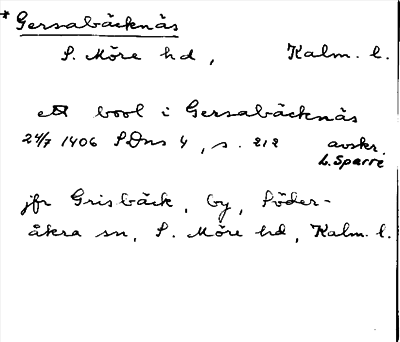 * Gersabäcknäs
S. Möre hd, Kalm. l.
ett bool i Gersabäcknäs
24/7 1406 SDns 4, s. 212 avskr.
L. Sparre
jfr Grisbäck, by, Söder-
åkra sn, S. Möre hd, Kalm. l.